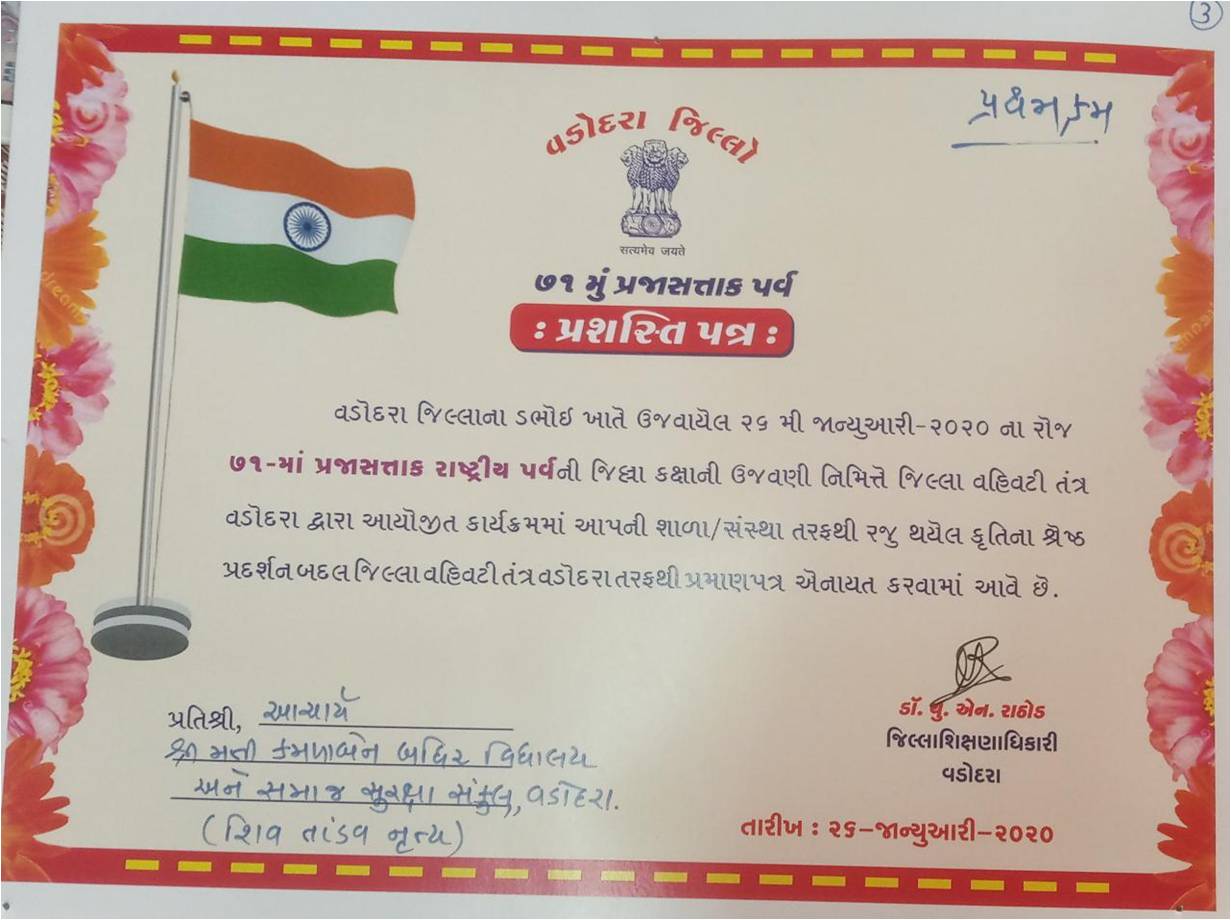 ૩
પ્રથમક્રમ
વડોદરા જિલ્લો
સત્યમેવ જયતે
૭૧ મું પ્રજાસત્તાક પર્વ
: પ્રશસ્તિ પત્ર :
વડોદરા જિલ્લાના ડભોઇ ખાતે ઉજવાયેલ ૨૬ મી જાન્યુઆરી-૨૦૨૦ ના રોજ
૭૧-માં પ્રજાસત્તાક રાષ્ટ્રીય પર્વની જિલ્લા કક્ષાની ઉજવણી નિમિત્તે જિલ્લા વહિવટી તંત્ર
વડોદરા દ્વારા આયોજીત કાર્યક્રમમાં આપની શાળા/સંસ્થા તરફથી રજુ થયેલ કૃતિના શ્રેષ્ઠ
પ્રદર્શન બદલ જિલ્લા વહિવટી તંત્ર વડોદરા તરફથી પ્રમાણપત્ર એનાયત કરવામાં આવે છે.
પ્રતિશ્રી, આચાર્ય
શ્રીમતી કમળાબેન બધિર વિદ્યાલય
અને સમાજ સુરક્ષા સંકુલ, વડોદરા.
(શિવ તાંડવ નૃત્ય)
ડૉ. યુ. એન. રાઠોડ
જિલ્લાશિક્ષણાધિકારી
વડોદરા
તારીખ : ૨૬-જાન્યુઆરી-૨૦૨૦
dream